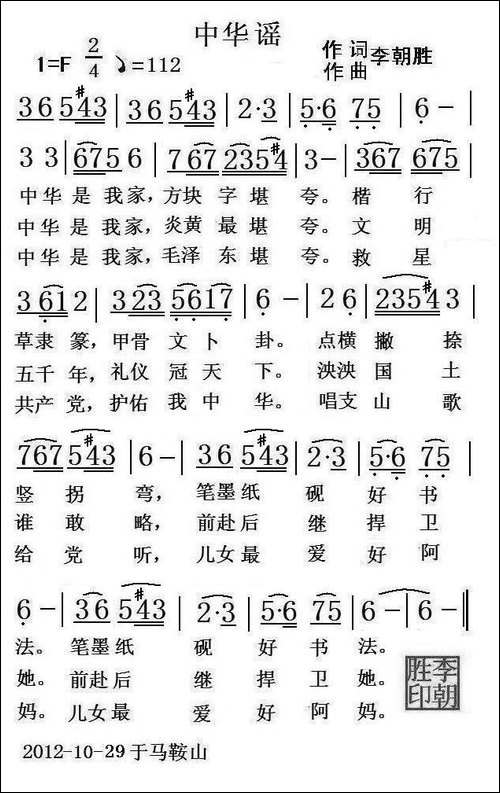 中华谣
1=F 2/4 ♩=112 作词 作曲 李朝胜
36 5#43 | 36 5#43 | 2·3 | 5·6 75 | 6 - |
3 3 | 675 6 | 7 67 235#4 | 3 - | 367 675 |
中华是我家,方块字堪夸。楷行
中华是我家,炎黄最堪夸。文明
中华是我家,毛泽东堪夸。救星
3 61 2 | 3 23 5617 | 6 - | 2 6 | 235#4 3 |
草隶篆,甲骨文卜卦。点横撇捺
五千年,礼仪冠天下。泱泱国土
共产党,护佑我中华。唱支山歌
767 5#43 | 6 - | 36 5#43 | 2·3 | 5·6 75 |
竖拐弯,笔墨纸砚好书
谁敢略,前赴后继捍卫
给党听,儿女最爱好阿
6 - | 36 5#43 | 2·3 | 5·6 75 | 6 - | 6 - ‖
法。笔墨纸砚好书法。
她。前赴后继捍卫她。
妈。儿女最爱好阿妈。
李朝胜印
2012-10-29于马鞍山